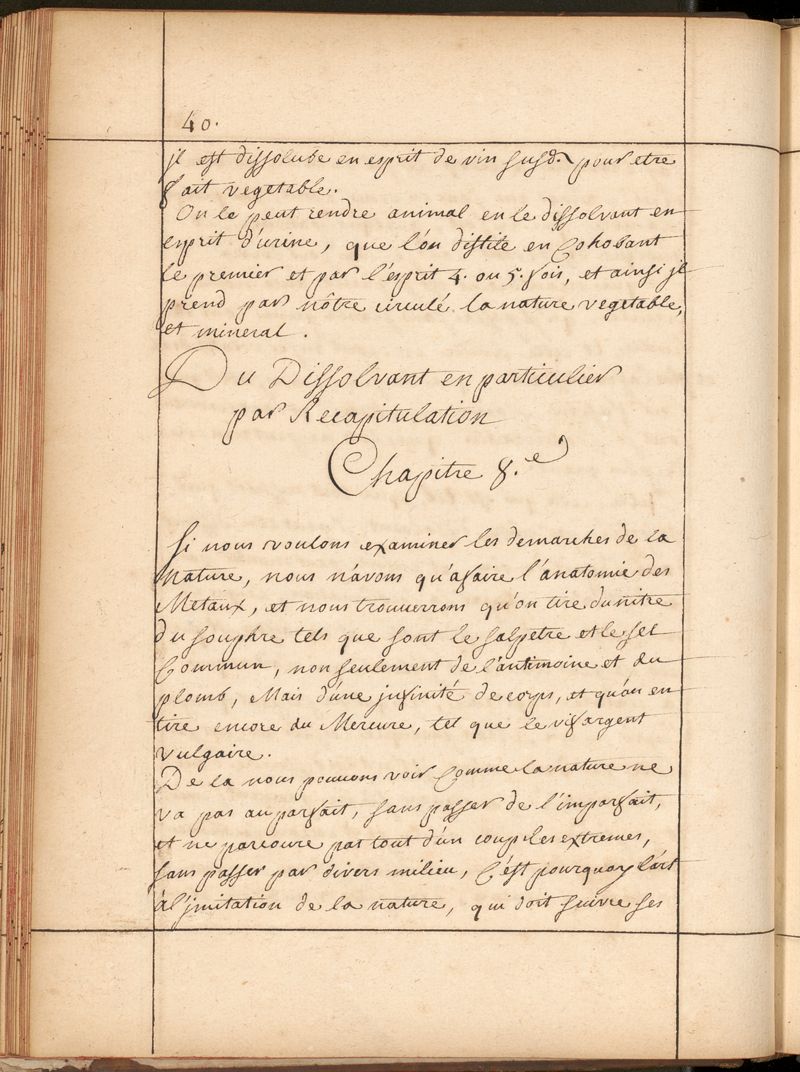 40.
jl est dissolube en esprit de vin susd. pour etre
fait vegetable.
On le peut rendre animal en le dissolvant en
esprit d'urine, que l'ón distile en Cohobant
le premier et par l'ésprit 4. ou 5. fois, et ainsi jl
prend par nôtre circulé la nature vegetable,
et mineral.
Du Dissolvant en particulier
par Recapitulation
Chapitre 8.e
Si nous voulons examiner les demarches de la
Nature, nous n'avons qu'afaire l'anatomie des
Metaux, et nous trouverrons qu'on tire du nitre
du souphre tels que sont le salpetre et le sel
Commun, non seulement de l'antimoine et du
plomb, Mais d'une jnfinité de corps, et qu'on en
tire encore du Mercure, tel que le vif argent
vulgaire.
De la nous pouvons voir Comme la nature ne
va pas au parfait, sans passer de l'imparfait,
et ne parcoure pas tout d'un coup les extremes,
sans passer par divers milieu, C'ést pourquoy l'árt
à l'jmitation de la nature, qui doit suivre ses